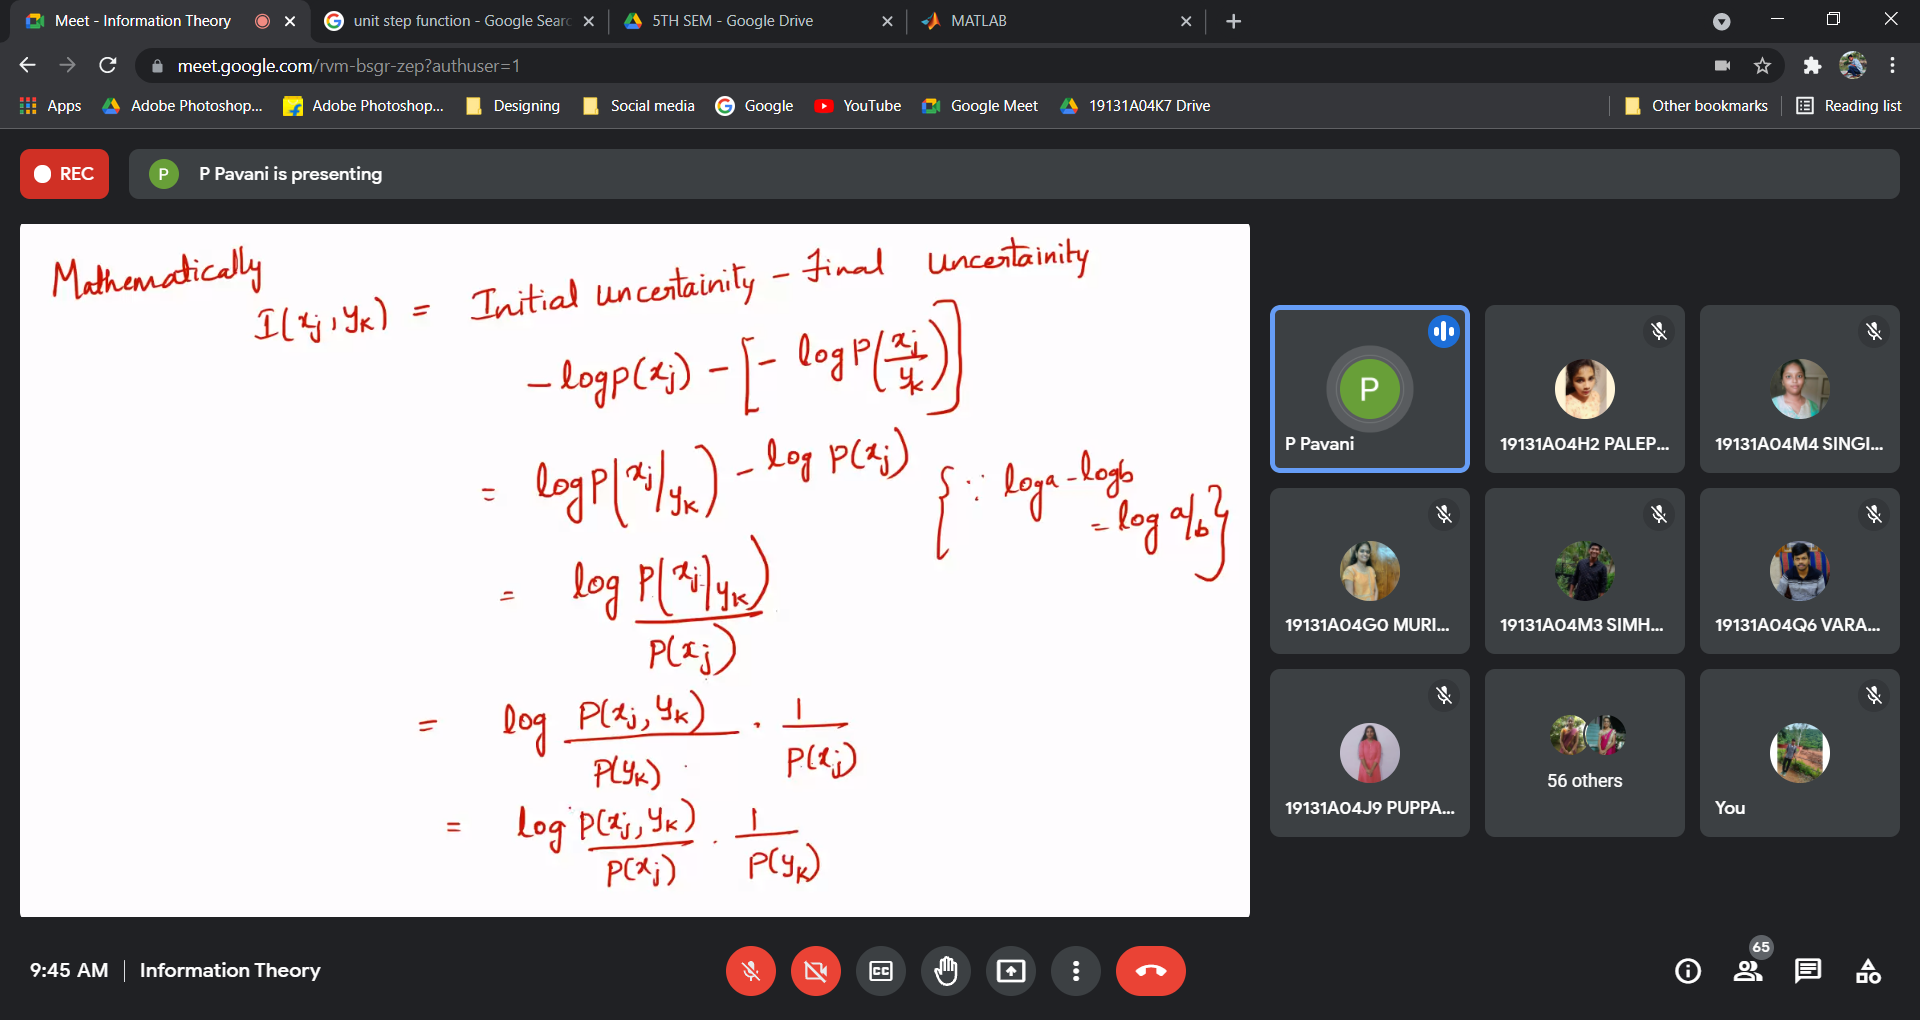 Meet - Information Theory
unit step function - Google Searc
5TH SEM - Google Drive
MATLAB
meet.google.com/rvm-bsgr-zep?authuser=1
Apps
Adobe Photoshop...
Adobe Photoshop...
Designing
Social media
Google
YouTube
Google Meet
19131A04K7 Drive
Other bookmarks
Reading list
REC
P
P Pavani is presenting
Mathematically
I(xj, yk) = Initial uncertainity - Final uncertainity
- log p(xj) - [- log P(xj/yk)]
= log P(xj/yk) - log P(xj) {∵ log a - log b
= log a/b}
= log P(xj/yk)
P(xj)
= log P(xj, yk) . 1
P(yk) P(xj)
= log P(xj, yk) . 1
P(xj) P(yk)
P
P Pavani
19131A04H2 PALEP...
19131A04M4 SINGI...
19131A04G0 MURI...
19131A04M3 SIMH...
19131A04Q6 VARA...
19131A04J9 PUPPA...
56 others
You
9:45 AM | Information Theory
CC
65